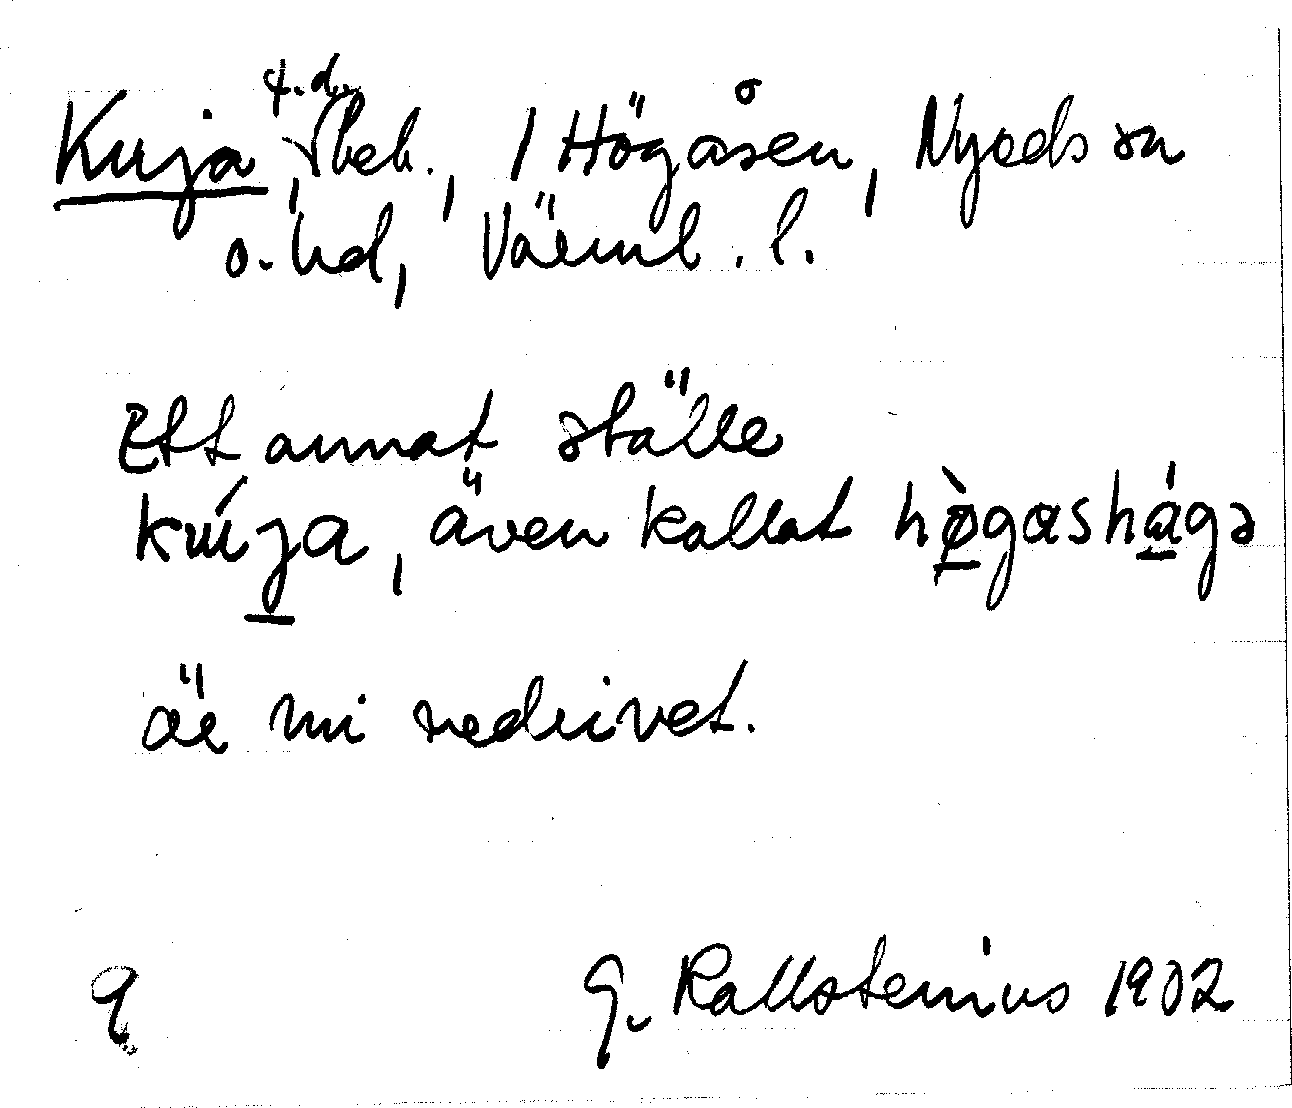 f.d.
Kuja, beb., 1 Högåsen, Nyeds sn
o. hd, Värml. l.
Ett annat ställe
kúja, även kallat hø̀gashágə
är nu nedrivet.
9 G. Kallstenius 1902